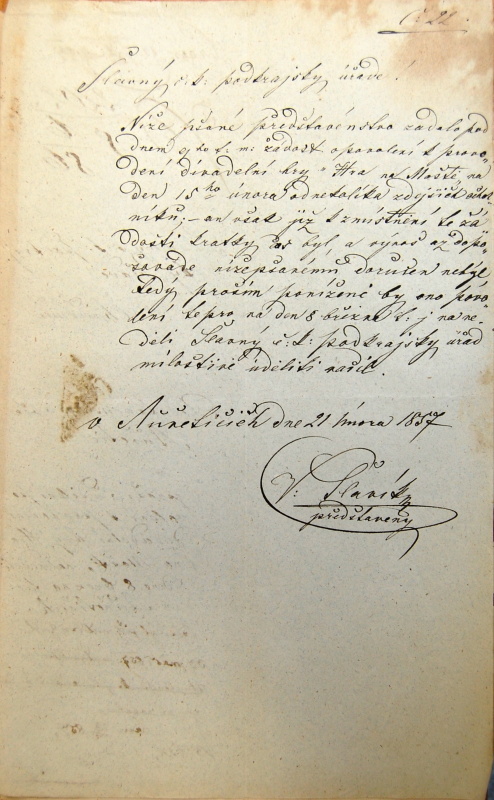 č. 22.
Slavný c. k. podkrajský úřade!
Níže psané představenstvo zadalo pod
dnem 9ho t: m: žádost o povolení k provo-
dení divadelní hry "Hra na Moště" na
den 15ho února od několika zdejších ochot-
níků; an však již k zmustnění té žá-
dosti krátký čas byl a výnos až dopo-
savade nížepsanému doručen nebyl
tedy prosím poníženě by ono povo-
lení tepro na den 8 března t: j na ne-
děli Slavný c: k: podkrajský úřad
milostivě uděliti ráčil.
v Nuřeticích dne 21 února 1857
V: Slavík
představený